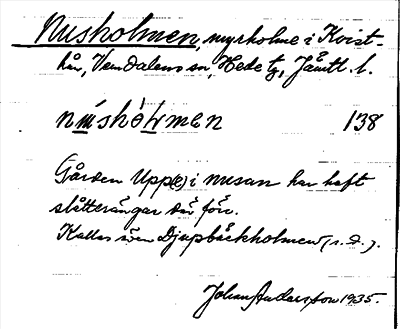 Nusholmen, myrholme i Kvist-
hån, Vemdalens sn, Hede tg, Jämtl. l.
138
Gården Upp(e) i nusan har haft
slåtterängar där förr.
Kallas även Djupbäckholmen (s.d.).
Johan Andersson 1935.